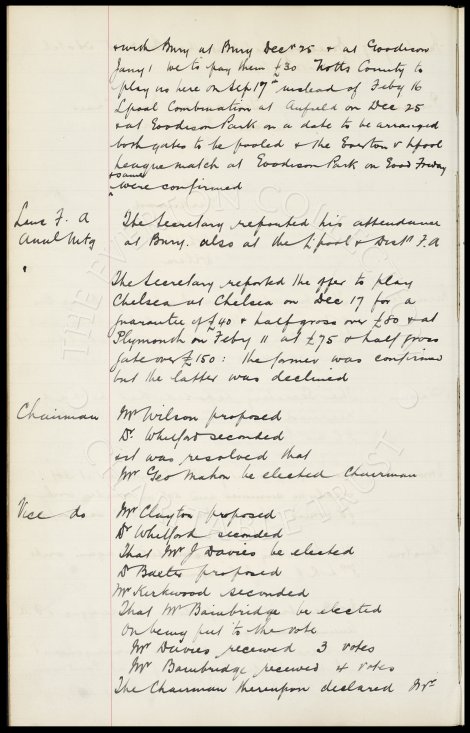 & with Bury at Bury Decr 25 & at Goodison
Jany 1 we to pay them £30 Notts County to
play us here on Sep 17th instead of Feby 16
Lpool Combination at Anfield on Dec 25
& at Goodison Park on a date to be arranged
both gates to be pooled & the Everton v Lpool
League match at Goodison Park on Good Friday
& same
were confirmed
Lanc F. A
Anul Mtg
The Secretary reported his attendance
at Bury. also at the L'pool & Distt F. A
The Secretary reported the offer to play
Chelsea at Chelsea on Dec 17 for a
guarantee of £40 & half gross over £80 & at
Plymouth on Feby 11 at £75 & half gross
gate over £150: the former was confirmed
but the latter was declined
Chairman
Mr Wilson proposed
Dr Whitford seconded
& it was resolved that
Mr Geo Mahon be elected Chairman
Vice do
Mr Clayton proposed
Dr Whitford seconded
That Mr J Davies be elected
Dr Baxter proposed
Mr Kirkwood seconded
That Mr Bainbridge be elected
On being put to the vote
Mr Davies received 3 votes
Mr Bainbridge received 4 votes
The Chairman thereupon declared Mr